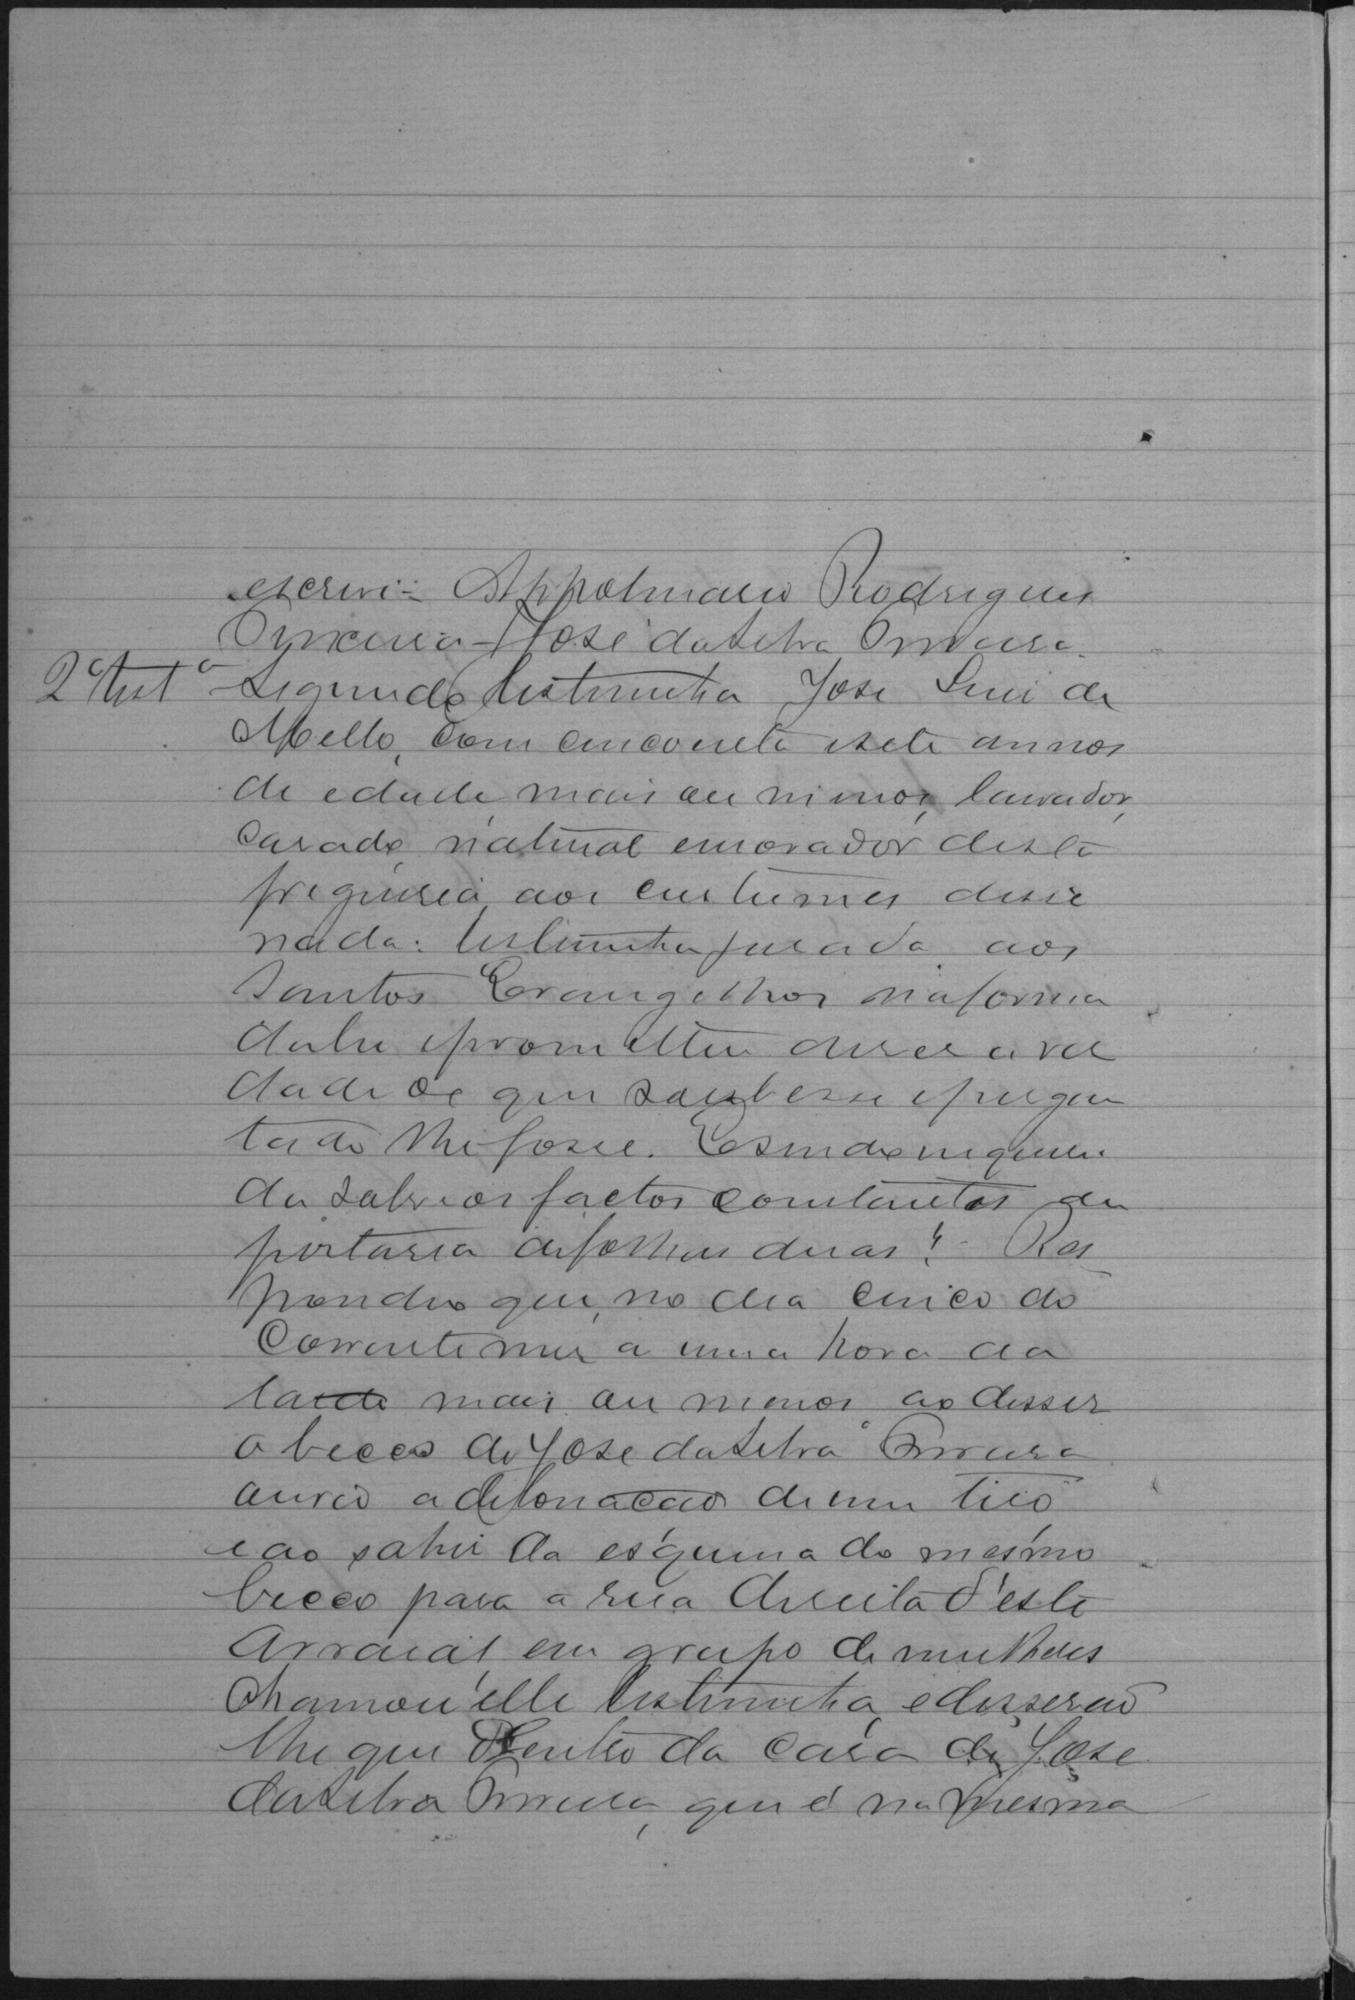 escrevi - Appolinario Rodrigues
José da Silva
2ª Testª
Segunda testemunha José Luis de
Mello, com cincoenta e sete annos
de edade mais ou menos, lavrador,
casado, natural e morador desta
freguesia, aos custumes disse
nada: testemunha jurada aos
Santos Evangelhos na forma
da lei e prometteu diser a ver
dade de que soubesse e pregun
tado lhe fosse. E sendo inqueri
da sobre os factos constantes da
portaria de folhas duas? - Res
pondeo que, no dia cinco do
corrente mes a uma hora da
tarde mais ou menos ao desser
o becco de José da Silva
ouvio a detonação de um tiro
e ao sahir da esquina do mesmo
becco para a rua direita d'este
Arraial um grupo de mulheres
chamou elle testemunha, e disserão
lhe que dentro da casa de José
da Silva, que é na mesma